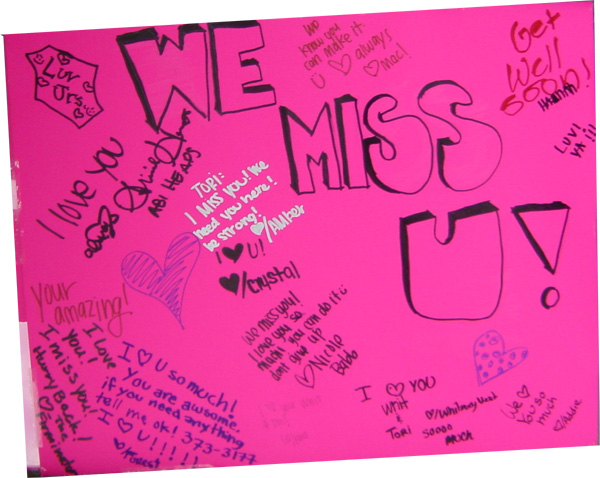 WE
MISS
U!
Luv
Urs
We
know you
can make it
always
mac!
Get
Well
SOON!
HANNAH
LUV!
YA!!!
I love you
ABI HEAPS
TORI:
I MISS YOU! We
need you here!
be strong!
/AMber
I ♥ U!
♥/Crystal
Your
amazing!
I Love
You!
I miss you!
Hurry Back!
♡ The
I ♡ U so much!
You are awsome.
if you need anything
tell me, ok! 373-3177
I ♡ U!!!!!
We miss you!
I love you so
much! you can do it
dont give up
♡ Nicole
Babb
I ♡ YOU
WHIT
&
TORI
♡/Whitney
SOOOO
MUCH
We ♡
You so
much